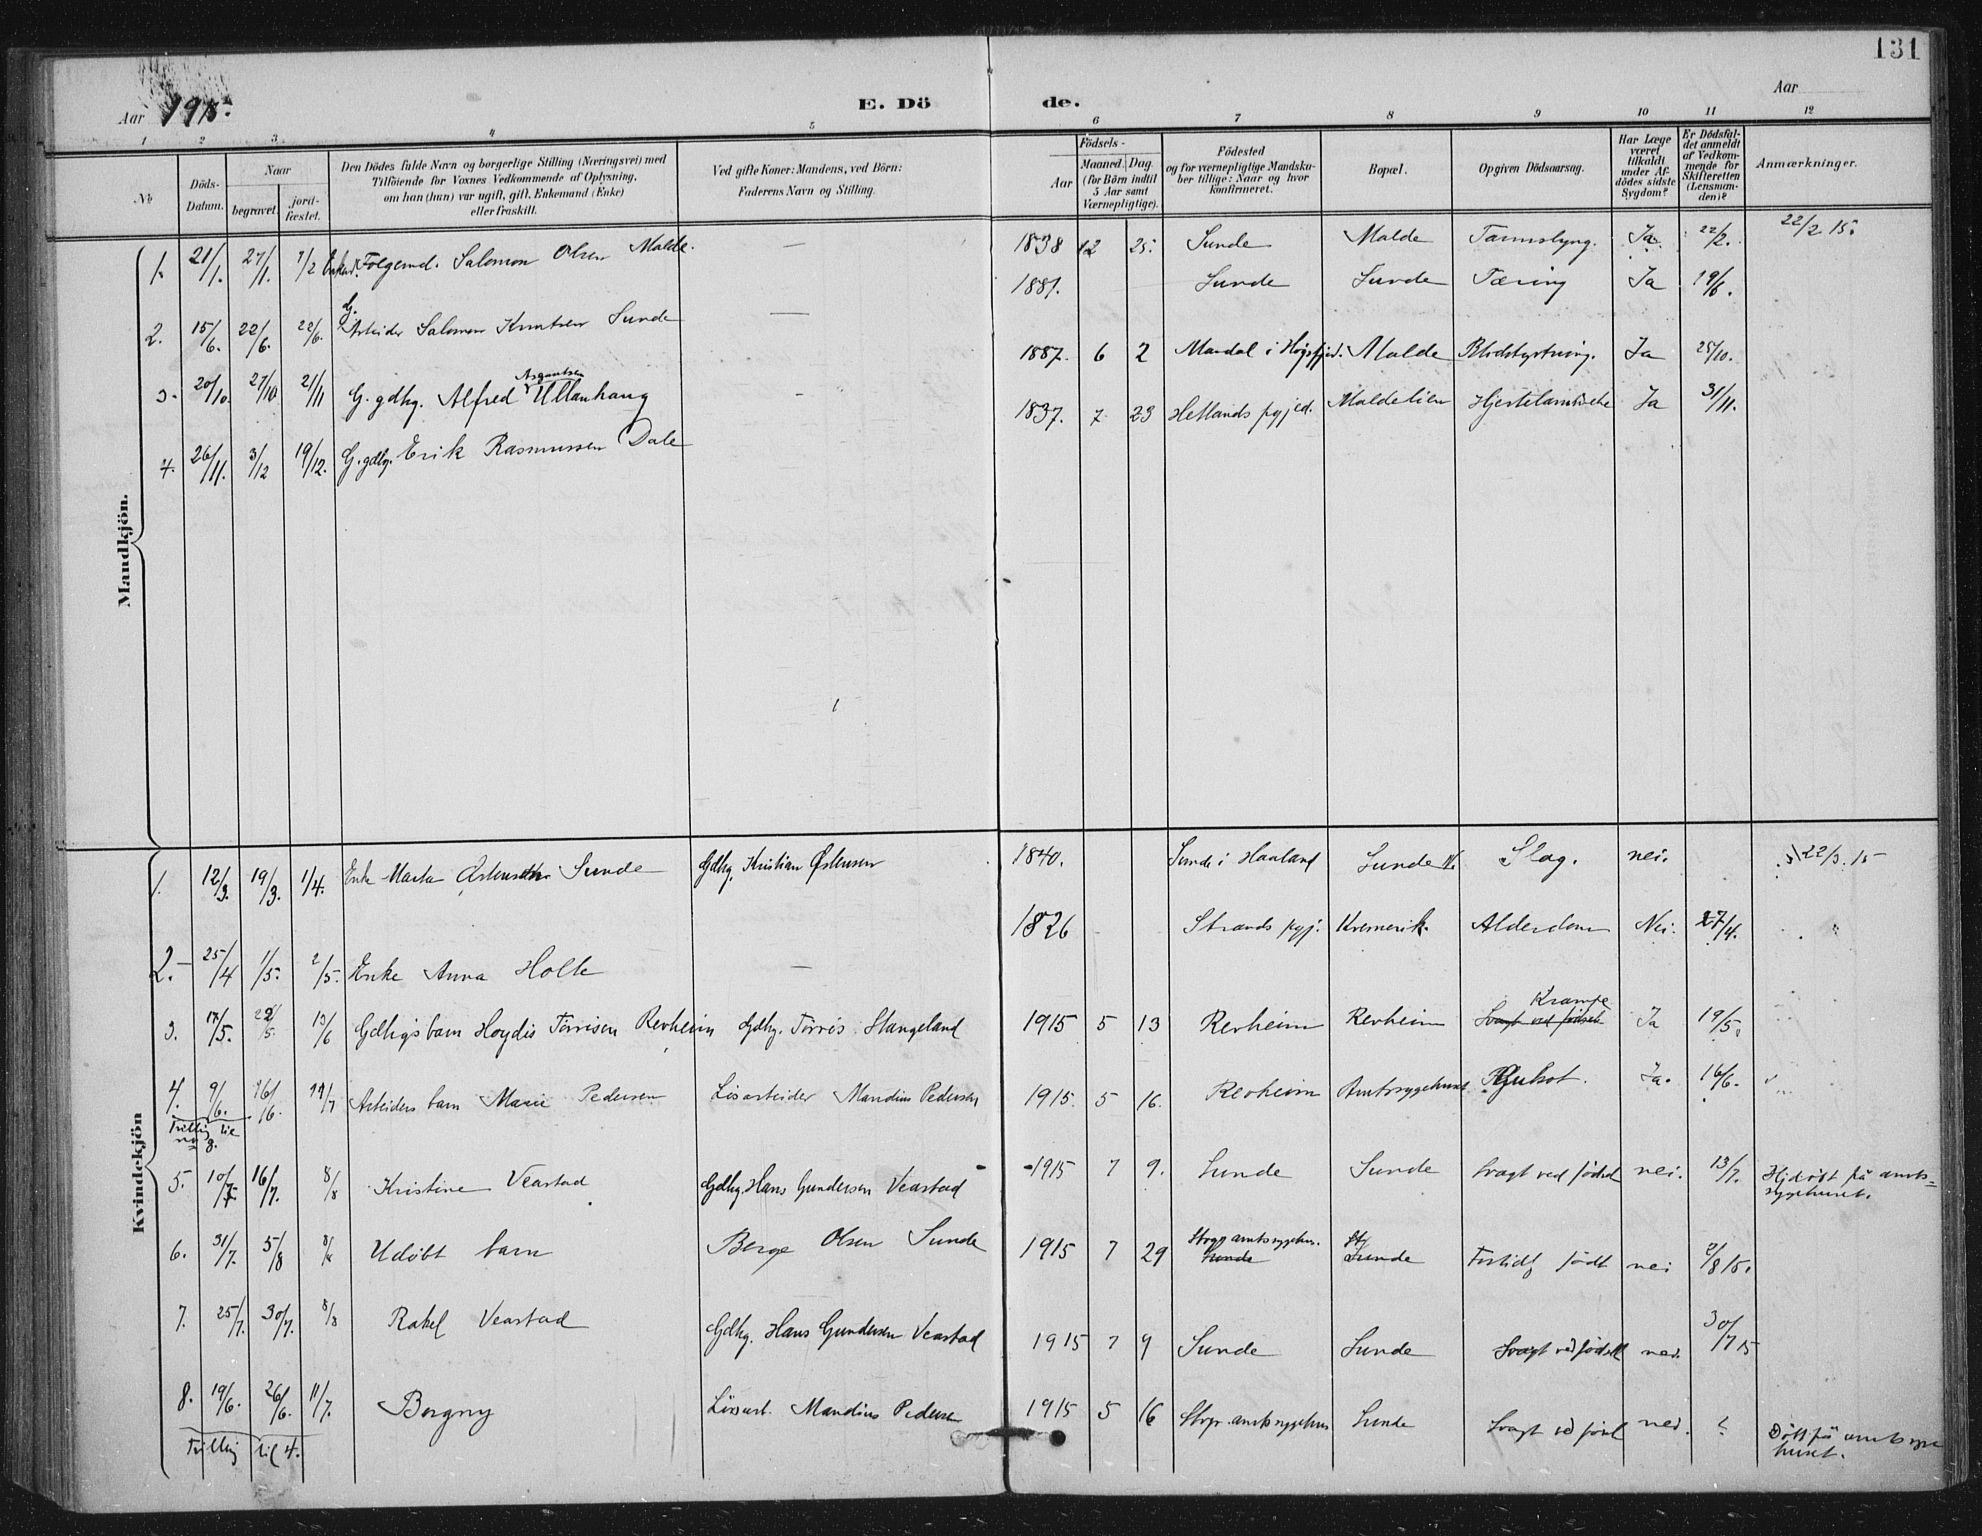 131
Aar 1915.
E. Döde.
Aar
1 2 3. 4 5 6 7 8 9 10 11 12
No
Döds-Datum.
Naar
begravet.
jord-fæstet.
Den Dödes fulde Navn og borgerlige Stilling (Næringsvei) med
Tilföiende for Voxnes Vedkommende af Oplysning,
om han (hun) var ugift, gift, Enkemand (Enke)
eller fraskilt.
Ved gifte Koner: Mandens, ved Börn:
Faderens Navn og Stilling.
Födsels-
Aar
Maaned. Dag.
(for Börn indtil
5 Aar samt
Værnepligtige).
Födested
og for værnepligtige Mandska-
ber tillige: Naar og hvor
konfirmeret.
Bopæl.
Opgiven Dödsaarsag.
Har Læge
været
tilkaldt
under Af-
dödes sidste
Sygdom?
Er Dödsfal-
det anmeldt
af Vedkom-
mende for
Skifteretten
(Lensman-
den)?
Anmærkninger.
Mandkjön.
1. 21/1. 27/1. 7/2 Enkem. Følgemd. Salomon Olsen Malde. — 1838 12 25. Sunde Malde Tarmslyng. Ja. 22/2. 22/2 15.
2. 15/6. 22/6. 22/6. G. Arbeider Salomon Knutsen Sunde — 1881. Sunde Sunde Tæring Ja 19/6.
3. 20/10. 27/10 21/11 G. gdbg. Alfred Asgautsen Ullanhaug - 1887. 6 2 Mandal i Høgsfjord. Malde Blodstyrtning. Ja 25/10.
4. 26/11. 3/12 19/12. G. gdbg. Erik Rasmussen Dale 1837. 7 23 Hetlands pgjed. Maldelien Ja 31/11.
Kvindekjön
1. 12/3. 19/3. 1/4. Enke Marta Østensen Sunde Gdbg. Kristian Østensen 1840. Sunde i Haaland Sunde Slag. nei. 22/3. 15
2. 25/4 1/5. 2/5. Enke Anna Holle — 1826 Strands pgj. Kvernevik. Alderdom Nei. 27/4. "
3. 17/5. 22/5. 13/6 Gdbgs barn Hoydis Tørrisen Revheim Gdbg. Tørris Stangeland 1915 5 13 Revheim Revheim Svagt ved fødsel Krampe Ja 19/5.
4. 9/6. 16/6. 14/7 Arbeiders barn Marie Pedersen Løsarbeider Mandius Pedersen 1915. 5 16. Revheim Amtssygehuset Ja. 16/6.
Trilling til no 8.
5. 10/7. 16/7. 8/8 Kristine Veastad Gdbg. Hans Gundersen Veastad 1915 7 9. Sunde Sunde Svagt ved fødsel nei. 13/7. Hjdøbt på amts=
sygehuset.
6. 31/7. 5/8 8/8 Udøbt barn Berge Olsen Sunde 1915 7 29 Sunde Stvgr amtssygehus. Sunde Fortidlg født nei 2/8 15.
7. 25/7. 30/7. 8/8 Rakel Veastad Gdbg. Hans Gundersen Veastad 1915 7 9 Sunde Sunde Svagt ved fødsel nei. 30/7 15
8. 19/6. 26/6. 11/7. Borgny Løsarb. Mandius Pedersen 1915 5 16 Stvgr. amtssygehus Sunde Svagt ved føds nei.
Trilling til 4.
Døbt på amtssyge
huset.